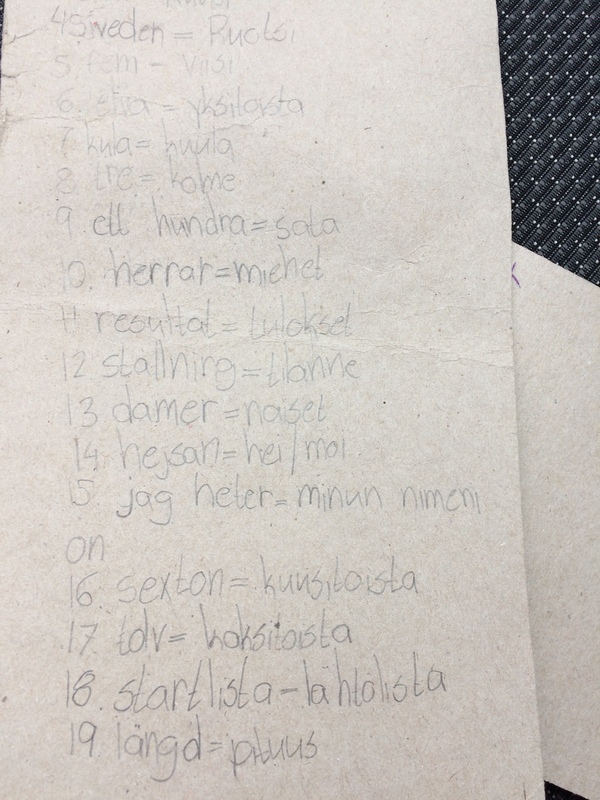 4 Sweden = Ruotsi
5. fem - viisi
6. elva = yksitoista
7 kula = kuula
8 tre = kolme
9. ett hundra = sata
10. herrar = miehet
11 resultat = tulokset
12 ställning = tilanne
13 damer = naiset
14 hejsan = hei/moi
15 jag heter = minun nimeni
on
16. sexton = kuusitoista
17. tolv = kaksitoista
18. startlista - lähtölista
19. längd = pituus